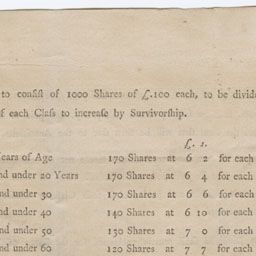 to conſiſt of 1000 Shares of £.100 each, to be divide
f each Claſs to increaſe by Survivorſhip.
£. s.
Years of Age 170 Shares at 6 2 for each
nd under 20 Years 170 Shares at 6 4 for each
nd under 30 170 Shares at 6 6 for each
nd under 40 140 Shares at 6 10 for each
nd under 50 130 Shares at 7 0 for each
nd under 60 120 Shares at 7 7 for each